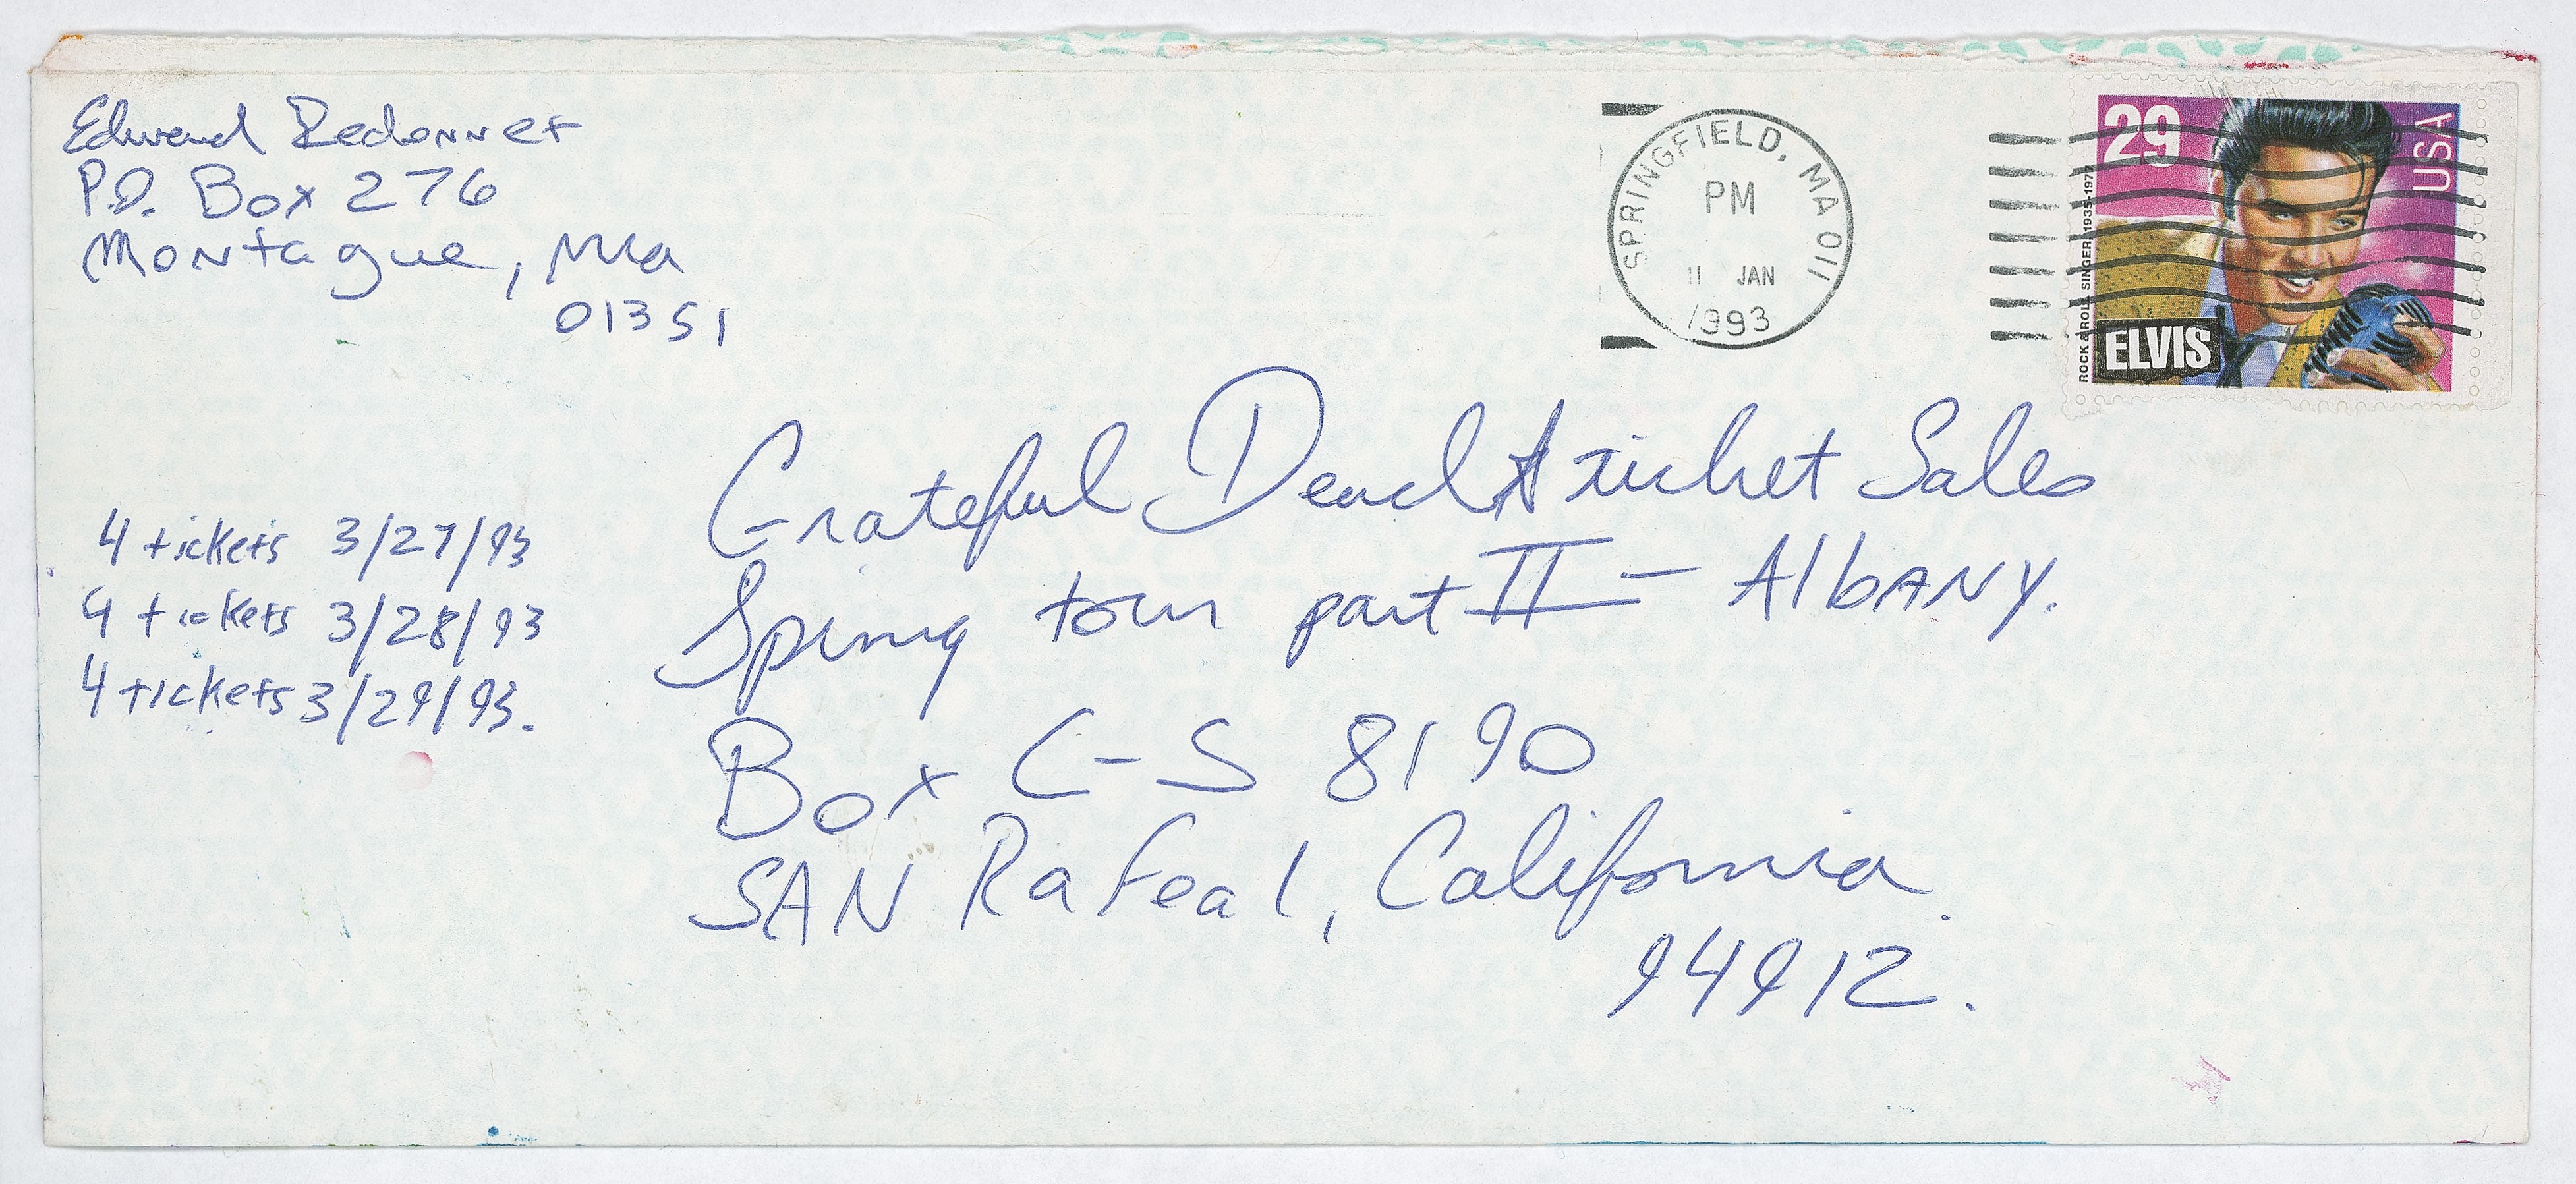 Edward Redonnet
P.O. Box 276
Montague, Ma
01351
SPRINGFIELD, MA 011
PM
11 JAN
1993
29
USA
ROCK & ROLL SINGER, 1935-1977
ELVIS
Grateful Dead ticket Sales
Spring tour part II - AlbANY.
Box C-S 8190
SAN Rafeal, California
94912.
4 tickets 3/27/93
4 tickets 3/28/93
4 tickets 3/29/93.